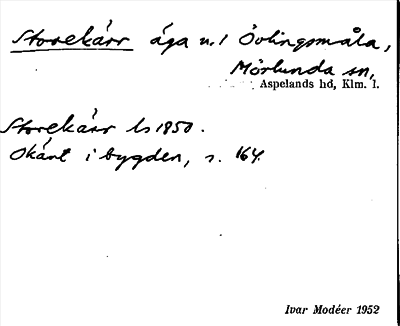 Storekärr äga u. 1 Övlingsmåla,
Mörlunda sn,
Aspelands hd, Klm. l.
Storekärr ls 1850.
Okänt i bygden, s. 164.
Ivar Modéer 1952